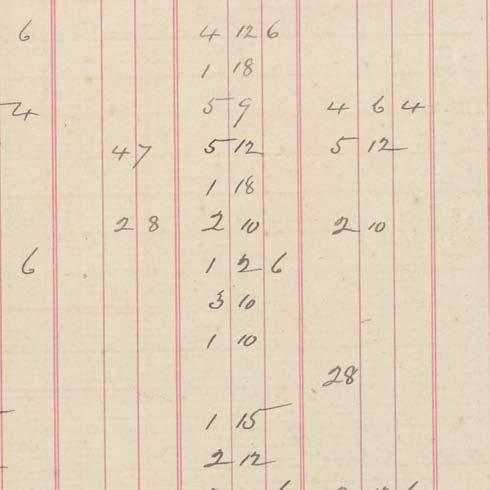 6 4 12 6
1 18
4 5 9 4 6 4
47 5 12 5 12
1 18
28 2 10 2 10
6 1 2 6
3 10
1 10
28
1 15
2 12